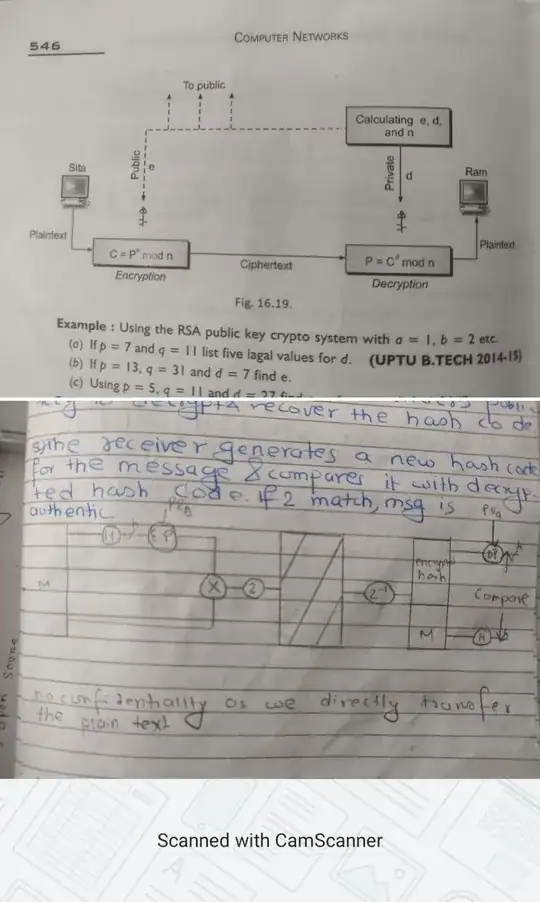 546
COMPUTER NETWORKS
To public
Calculating e, d,
and n
Sita
Public
e
Private
d
Ram
Plaintext
C = Pᵉ mod n
Ciphertext
P = Cᵈ mod n
Plaintext
Encryption
Decryption
Fig. 16.19.
Example : Using the RSA public key crypto system with a = 1, b = 2 etc.
(a) If p = 7 and q = 11 list five lagal values for d. (UPTU B.TECH 2014-15)
(b) If p = 13, q = 31 and d = 7 find e.
(c) Using p = 5, q = 11 and d = 27 find
recover the hash code
the receiver generates a new hash code
for the message & compares it with decryp-
ted hash code. if 2 match, msg is
authentic
PRa
PUa
H
EP
DP
M
X
Z
Z⁻¹
encrypt
hash
Compare
M
H
no confidentiality as we directly transfer
the plain text
Scanned with CamScanner